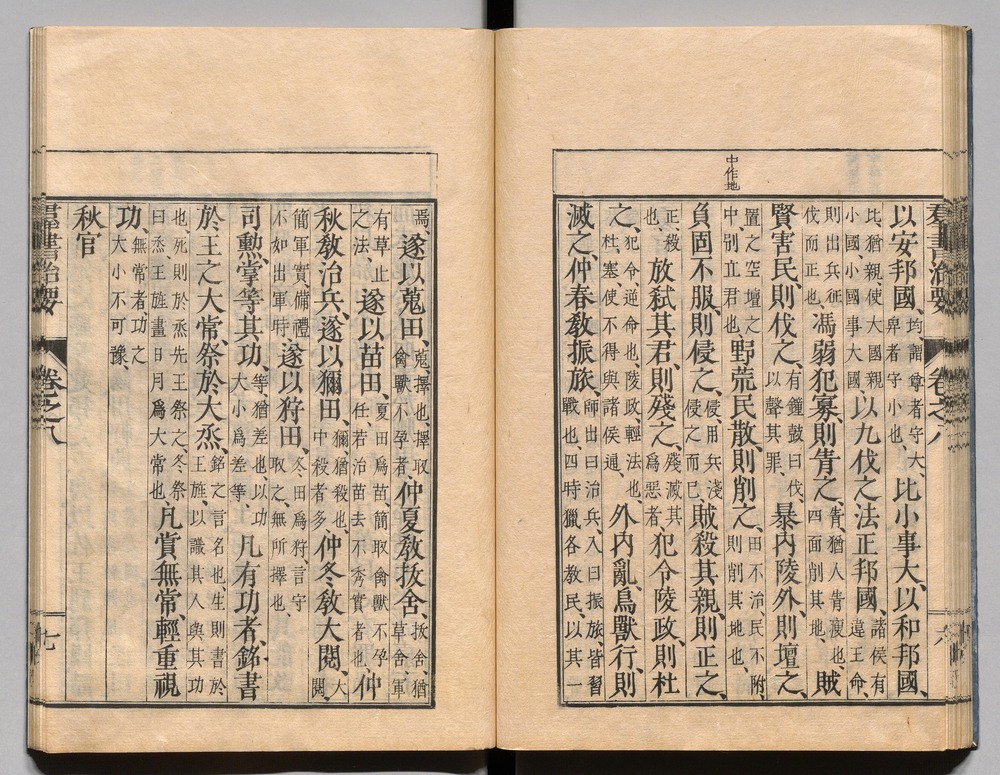 羣書治要 卷之八 六
中作地
以安邦國、均謂尊者守大、卑者守小也、比小事大、以和邦國、
比猶親、使大國親小國、小國事大國、以九伐之法正邦國、諸侯有違王命、
則出兵征伐而正之也、馮弱犯寡、則眚之、眚猶人眚瘦也、四面削其地、賊
賢害民、則伐之、有鐘鼓曰伐、以聲其罪、暴內陵外、則壇之、
置之空壇之中、別立君也、野荒民散、則削之、田不治、民不附、則削其地也、
負固不服、則侵之、侵、用兵淺、侵之而已、賊殺其親、則正之、
正、殺也、放弑其君、則殘之、殘、滅其爲惡者、犯令陵政、則杜
之、犯令、逆命也、陵政、輕法也、杜、塞、使不得與諸侯通、外內亂、鳥獸行、則
滅之、仲春教振旅、師出曰治兵、入曰振旅、皆習戰也、四時獵、各教民、以其一
焉、遂以蒐田、蒐、擇也、擇取禽獸不孕者、仲夏教茇舍、茇舍、猶草舍、軍
有草止之法、遂以苗田、夏田爲苗、簡取禽獸不孕任、若治苗去不秀實者也、仲
秋教治兵、遂以獮田、獮、猶殺也、中殺者多、仲冬教大閱、大閱、
簡軍實、備禮、不如出軍時、遂以狩田、冬田爲狩、言守取之、無所擇也、
司勳、掌等其功、等、猶差也、以功大小爲差等、凡有功者、銘書
於王之大常、祭於大烝、銘之言名也、生則書於王旌、以識其人與其功
也、死則於烝先王祭之、冬祭曰烝、王旌畫日月爲大常也、凡賞無常、輕重視
功、無常者、功之大小不可豫、
秋官
羣書治要 卷之八 七